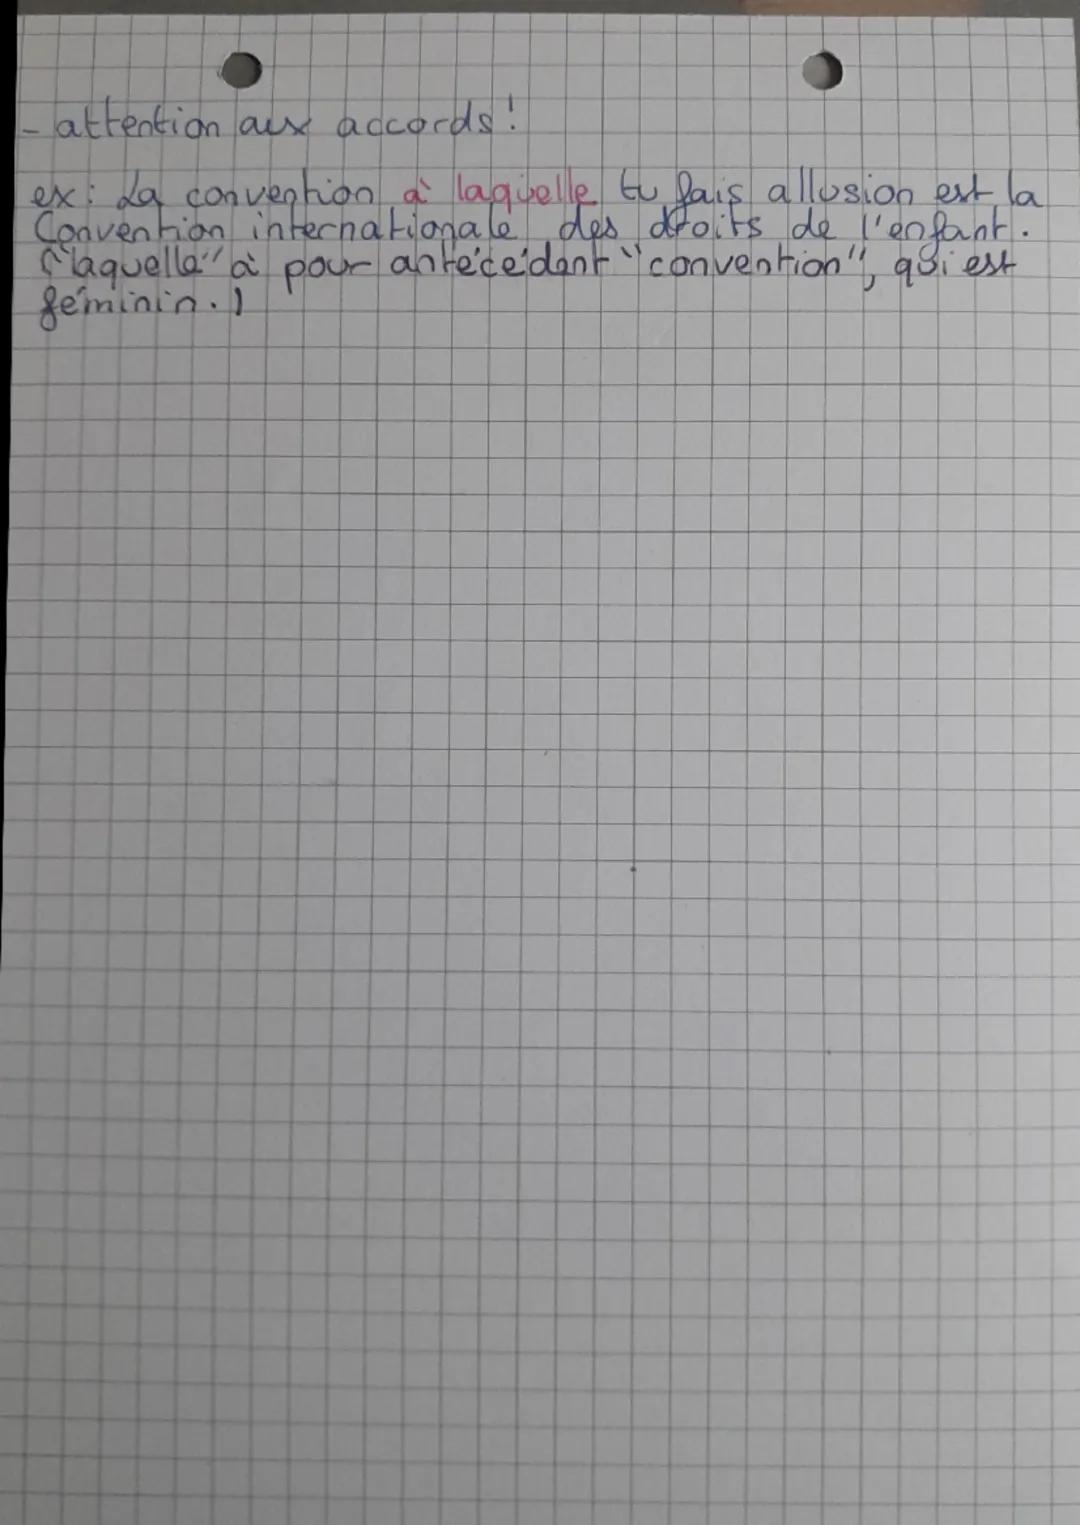 - attention aux accords!
ex: La convention à laquelle tu fais allusion est la
Convention internationale des droits de l'enfant.
("laquelle" à pour antécédant "convention", qui est
féminin.)